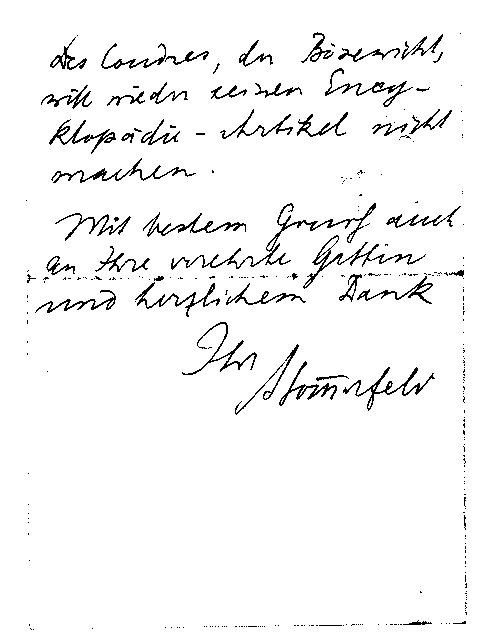 des Coudres, der Bösewicht,
will wieder seinen Ency-
klopädie-Artikel nicht
machen.
Mit bestem Gruß auch
an Ihre verehrte Gattin
und herzlichem Dank
Ihr
ASom̅erfeld